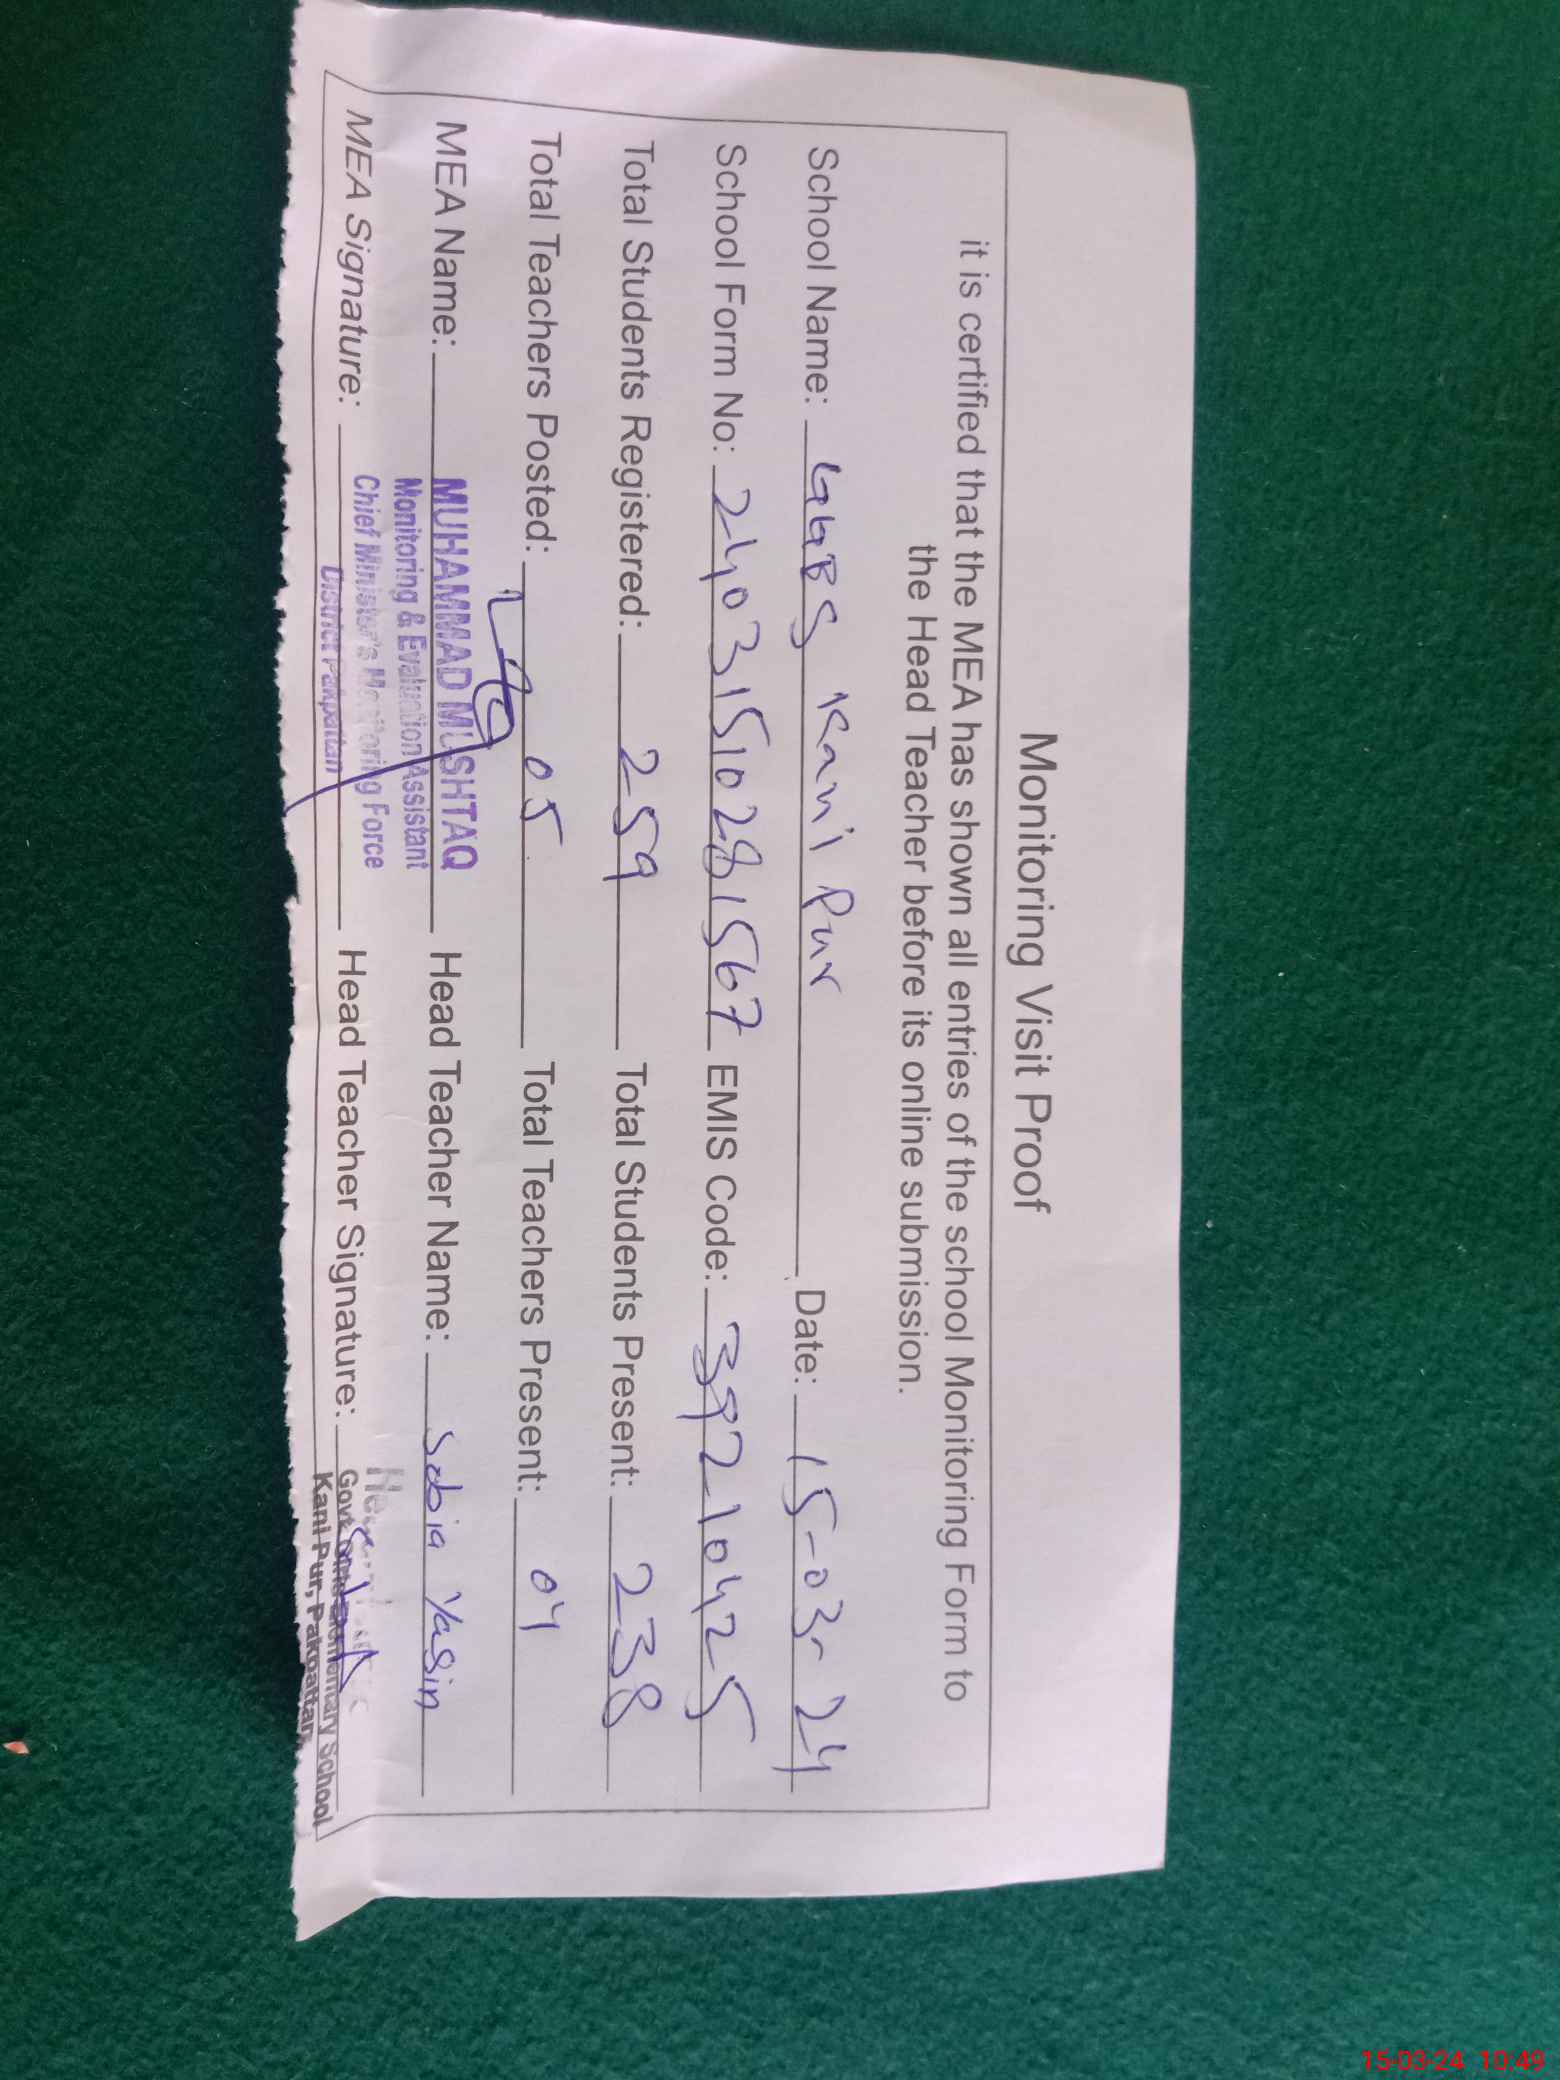 Monitoring Visit Proof
it is certified that the MEA has shown all entries of the school Monitoring Form to
the Head Teacher before its online submission.
School Name: GGES Kani Pur Date: 15-03-24
School Form No: 24031510281567 EMIS Code: 39210425
Total Students Registered: 259 Total Students Present: 238
Total Teachers Posted: 05 Total Teachers Present: 04
MEA Name: MUHAMMAD MUSHTAQ Head Teacher Name: Sobia Yasin
Monitoring & Evaluation Assistant
Chief Minister's Monitoring Force
District Pakpattan
MEA Signature: Head Teacher Signature:
Govt. Girls Elementary School
Kani Pur, Pakpattan
15-03-24 10:49